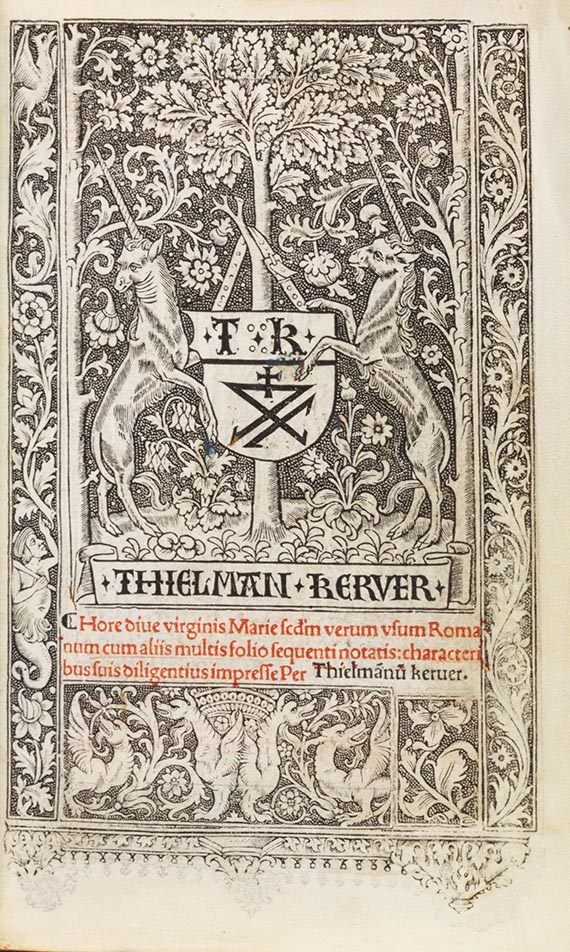 ·T·:·K·
·THIELMAN·KERVER·
¶ Hore diue virginis Marie scd̄m verum vsum Roma
num cum aliis multis folio sequenti notatis: characteri
bus suis diligentius impresse Per Thielmānū kerver.